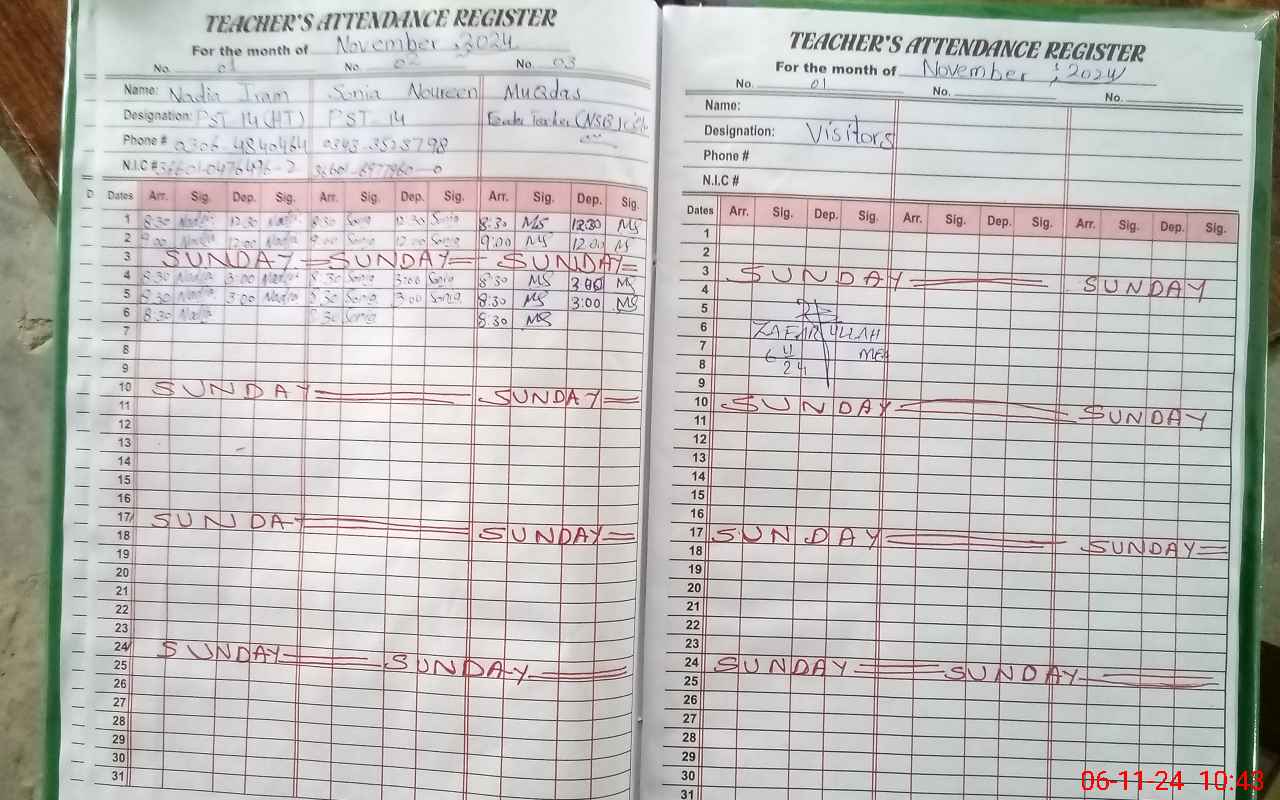 TEACHER'S ATTENDANCE REGISTER
For the month of November, 2024
No. 01 No. 02 No. 03
Name: Nadia Iram Sonia Noureen MuQdas
Designation: PST 14 (HT) PST 14 Teacher (NSB)
Phone # 0306-4840464 0343-3525798
N.I.C # 36601-0476496-2 36601-6977960-0
D Dates Arr. Sig. Dep. Sig. Arr. Sig. Dep. Sig. Arr. Sig. Dep. Sig.
1 8:30 Nadia 12:30 Nadia 8:30 Sonia 12:30 Sonia 8:30 MS 12:30 MS
2 9:00 Nadia 12:00 Nadia 9:00 Sonia 12:00 Sonia 9:00 MS 12:00 MS
3 SUNDAY SUNDAY SUNDAY
4 8:30 Nadia 3:00 Nadia 8:30 Sonia 3:00 Sonia 8:30 MS 3:00 MS
5 8:30 Nadia 3:00 Nadia 8:30 Sonia 3:00 Sonia 8:30 MS 3:00 MS
6 8:30 Nadia 8:30 Sonia 8:30 MS
7
8
9
10 SUNDAY SUNDAY
11
12
13
14
15
16
17 SUNDAY SUNDAY
18
19
20
21
22
23
24 SUNDAY SUNDAY
25
26
27
28
29
30
31
TEACHER'S ATTENDANCE REGISTER
For the month of November, 2024
No. 01 No. No.
Name:
Designation: Visitors
Phone #
N.I.C #
Dates Arr. Sig. Dep. Sig. Arr. Sig. Dep. Sig. Arr. Sig. Dep. Sig.
1
2
3 SUNDAY SUNDAY
4
5
6 ZAFAR ULLAH
7 6 11 MEA
8 24
9
10 SUNDAY SUNDAY
11
12
13
14
15
16
17 SUNDAY SUNDAY
18
19
20
21
22
23
24 SUNDAY SUNDAY
25
26
27
28
29
30
31
06-11-24 10:43